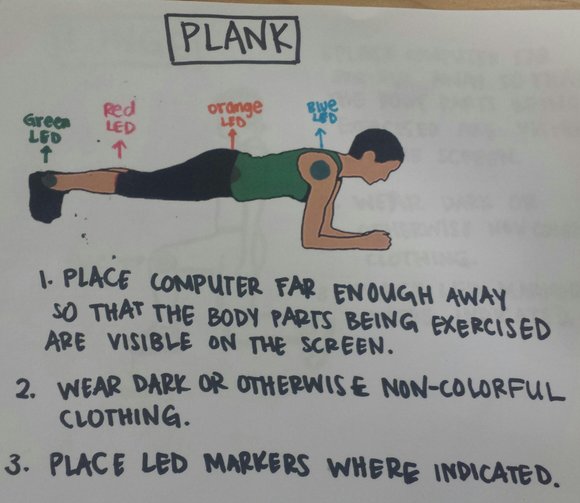 PLANK
Green LED
Red LED
Orange LED
Blue LED
1. PLACE COMPUTER FAR ENOUGH AWAY
SO THAT THE BODY PARTS BEING EXERCISED
ARE VISIBLE ON THE SCREEN.
2. WEAR DARK OR OTHERWISE NON-COLORFUL
CLOTHING.
3. PLACE LED MARKERS WHERE INDICATED.